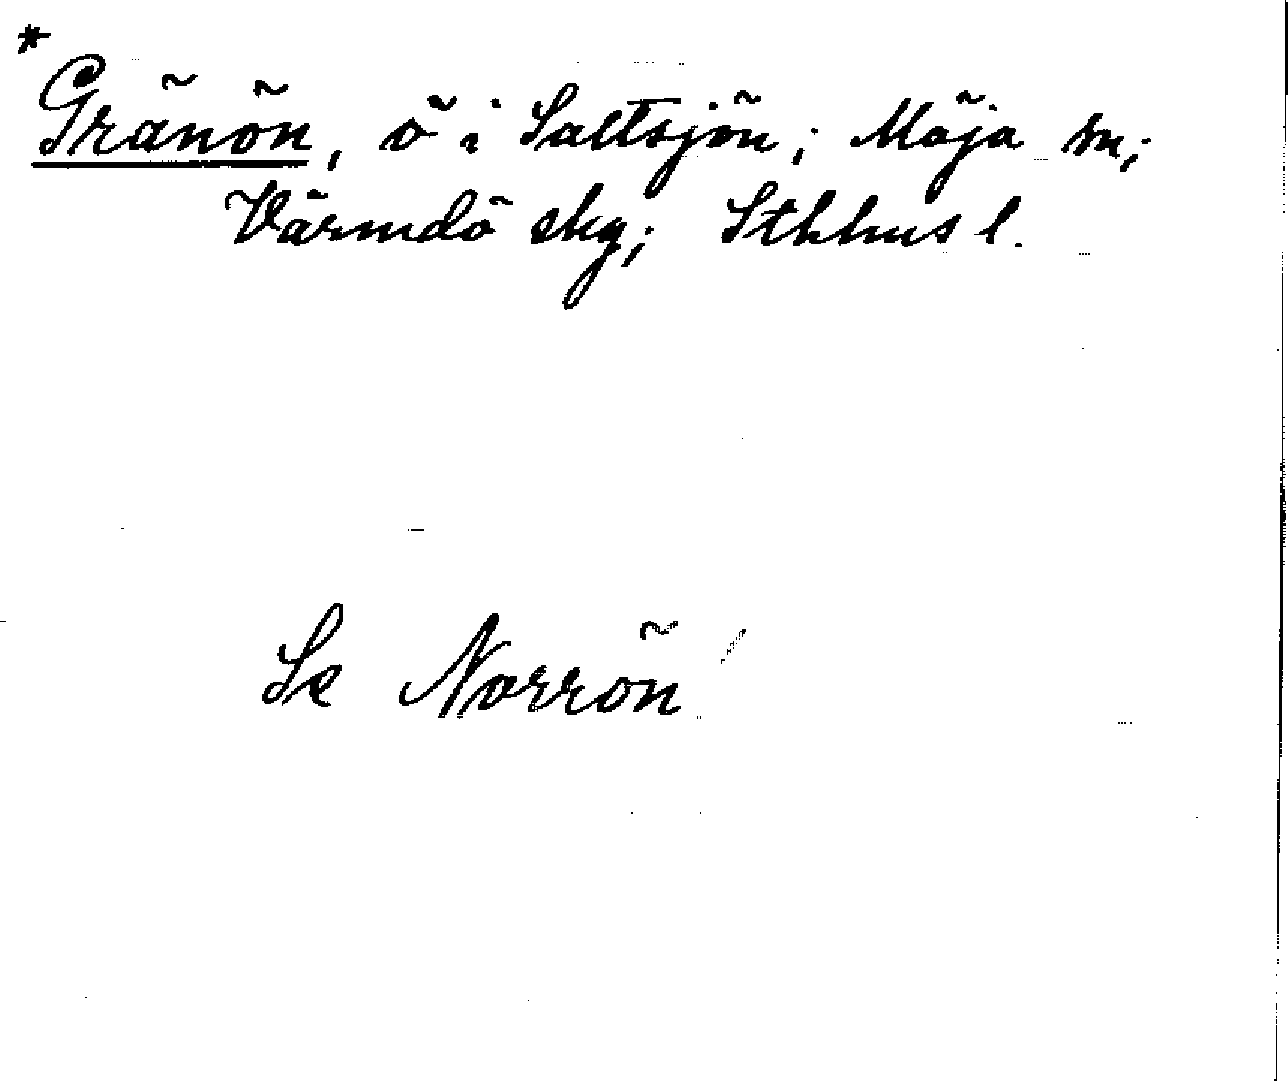 *
Gränön, ö i Saltsjön; Möja sn;
Värmdö skg; Sthlms l.
Se Norrön